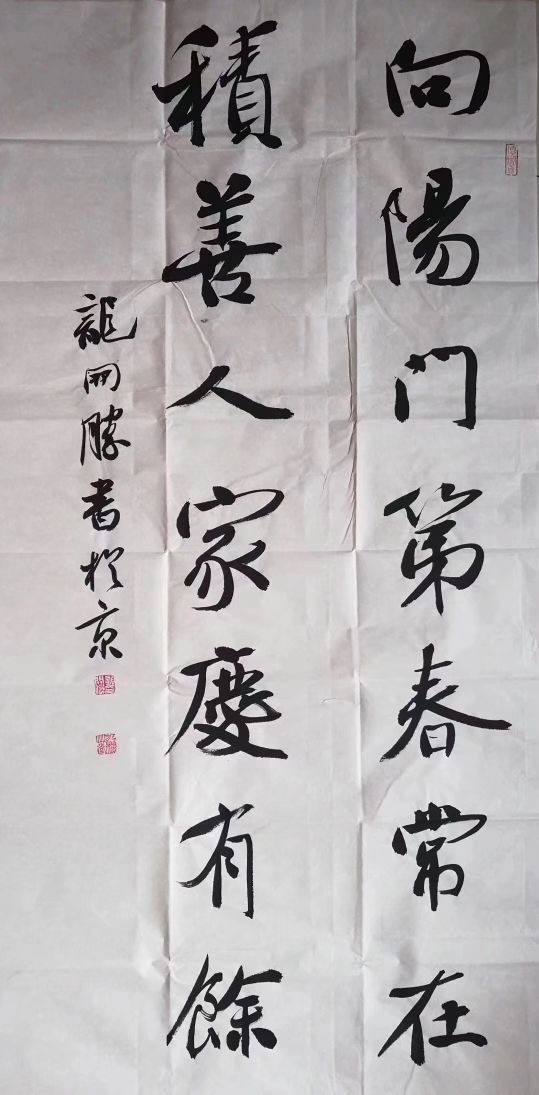 向陽门第春常在
積善人家慶有餘
龍開勝書於京